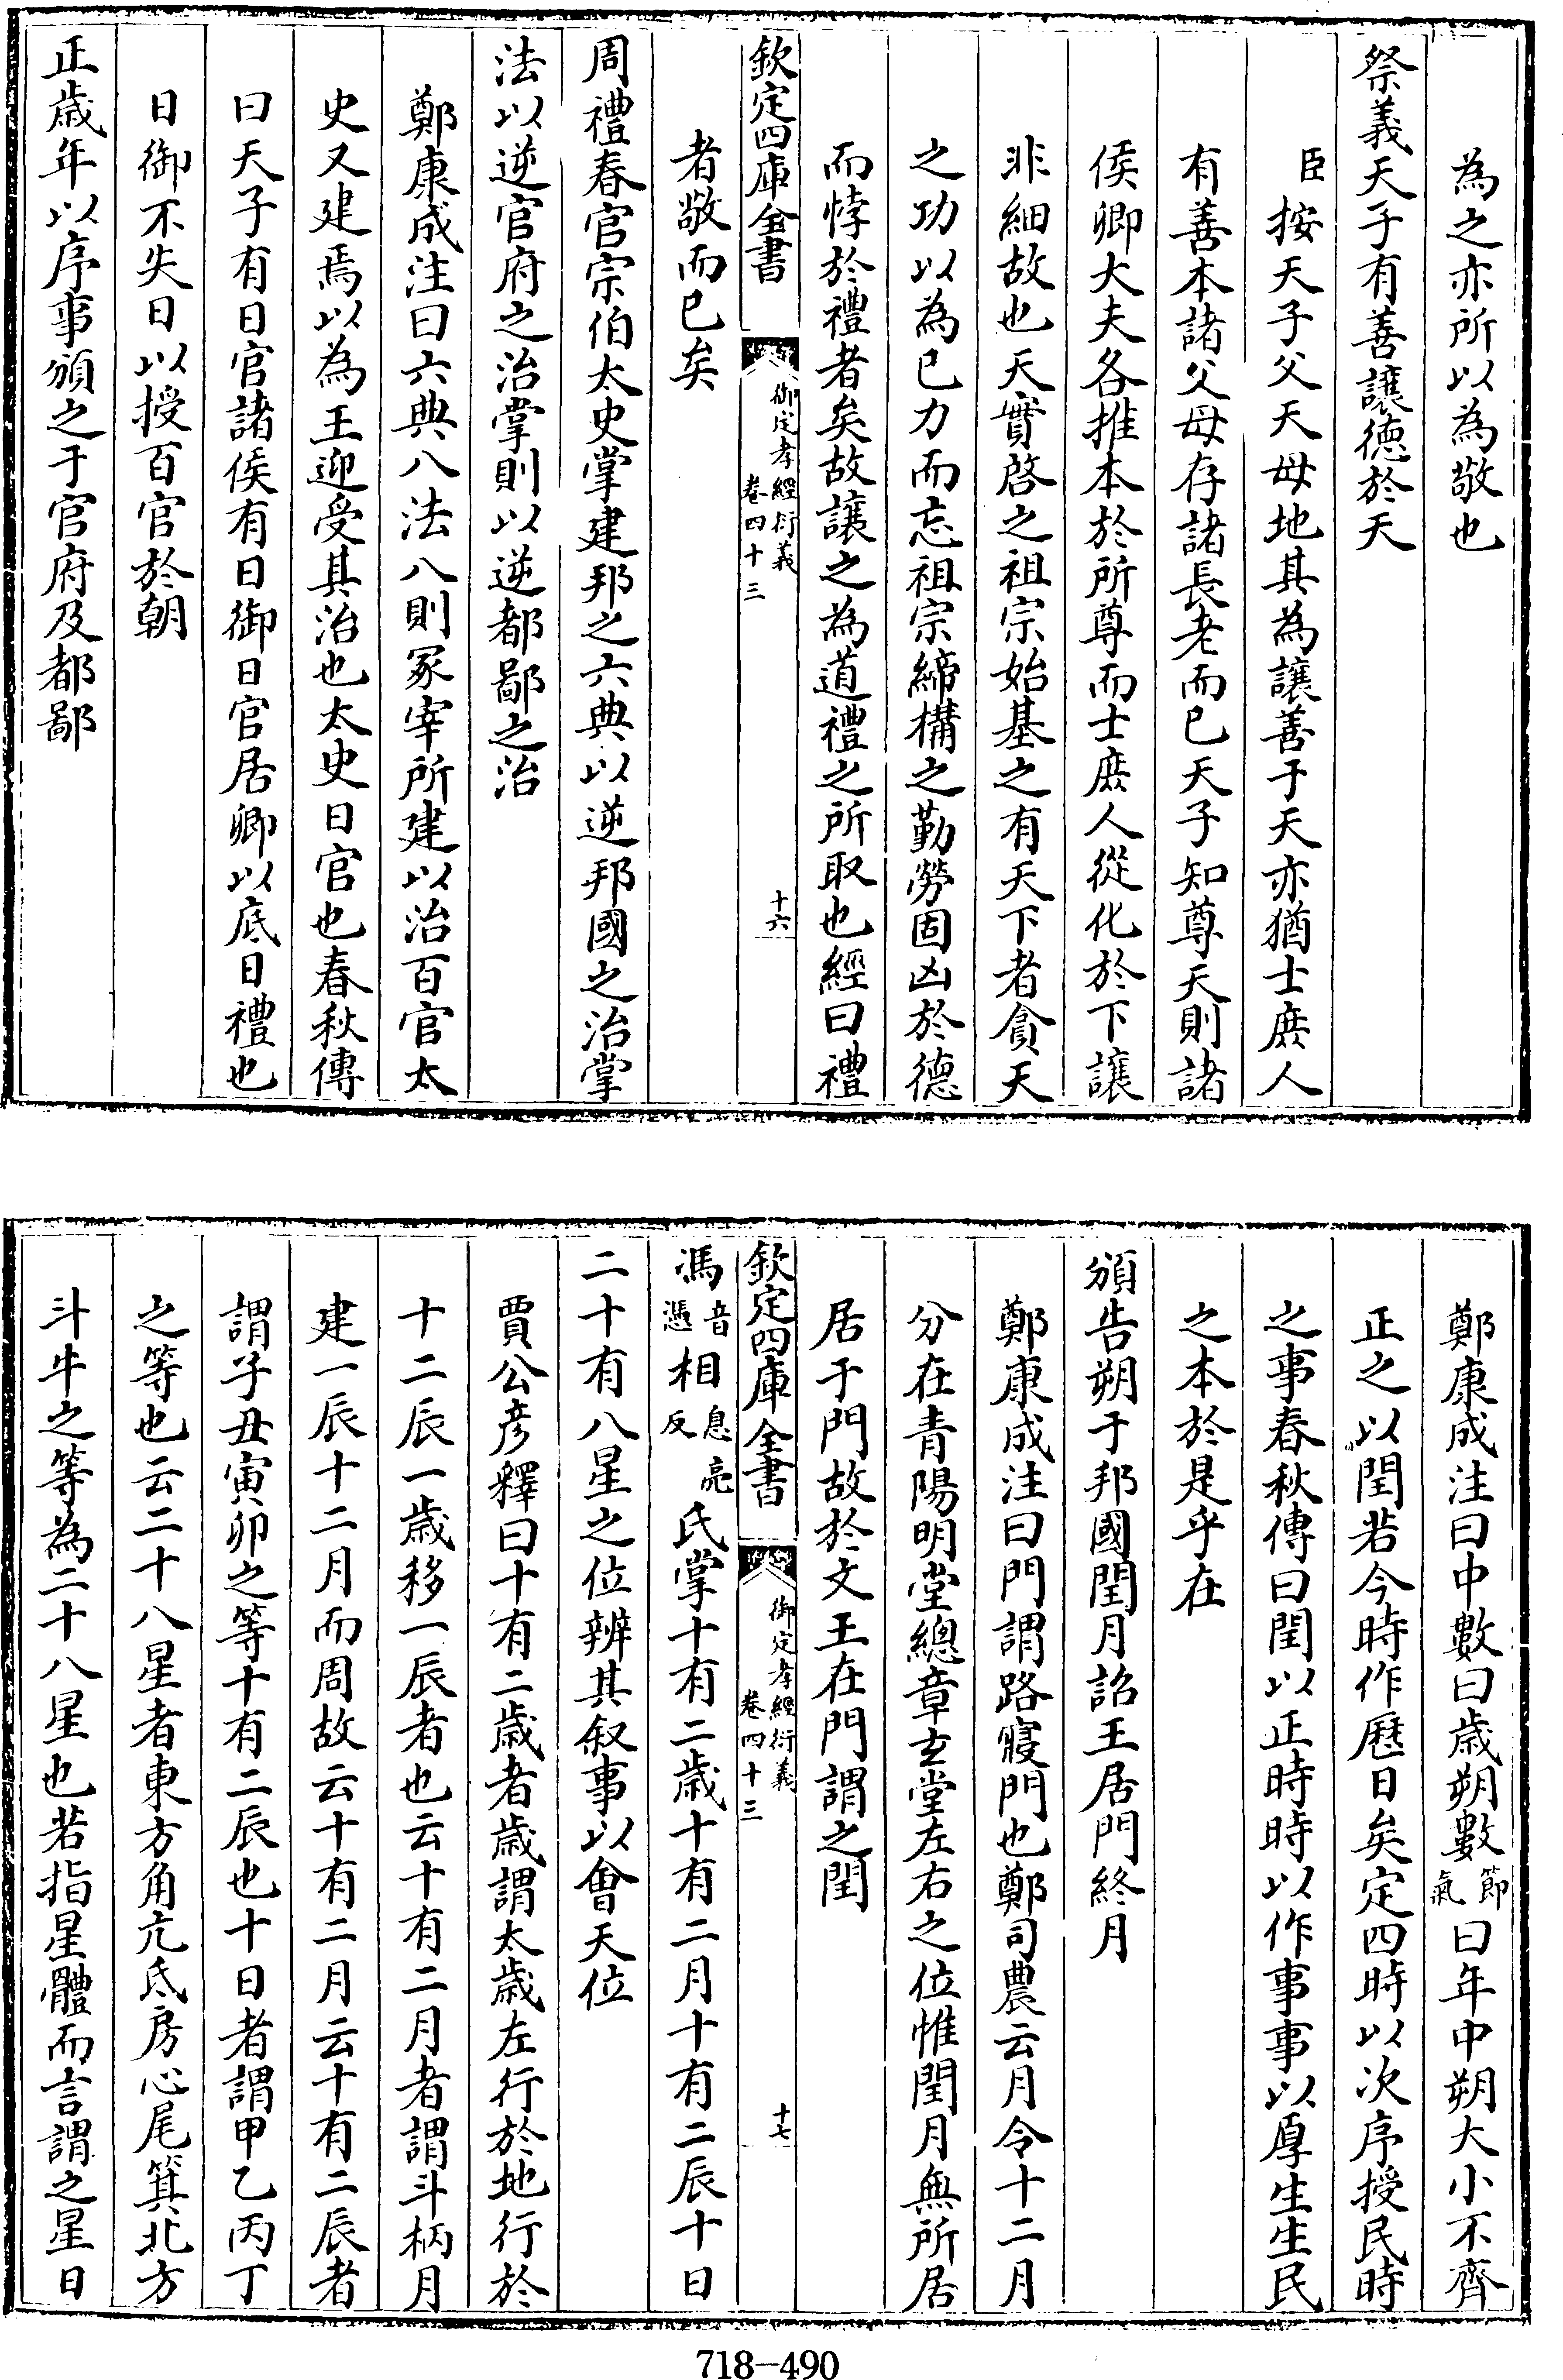 為之亦所以為敬也
祭義天子有善讓德於天
臣按天子父天母地其為讓善于天亦猶士庶人
有善本諸父母存諸長老而已天子知尊天則諸
侯卿大夫各推本於所尊而士庶人從化於下讓
非細故也天實啓之祖宗始基之有天下者貪天
之功以為已力而忘祖宗締構之勤勞固凶於德
而悖於禮者矣故讓之為道禮之所取也經曰禮
欽定四庫全書 御定孝經衍義 卷四十三 十六
者敬而已矣
周禮春官宗伯太史掌建邦之六典以逆邦國之治掌
法以逆官府之治掌則以逆都鄙之治
鄭康成注曰六典八法八則冢宰所建以治百官太
史又建焉以為王迎受其治也太史日官也春秋傳
曰天子有日官諸侯有日御日官居卿以底日禮也
日御不失日以授百官於朝
正歲年以序事頒之于官府及都鄙
鄭康成注曰中數曰歲朔數節氣曰年中朔大小不齊
正之以閏若今時作歷日矣定四時以次序授民時
之事春秋傳曰閏以正時時以作事事以厚生生民
之本於是乎在
頒告朔于邦國閏月詔王居門終月
鄭康成注曰門謂路寢門也鄭司農云月令十二月
分在青陽明堂總章玄堂左右之位惟閏月無所居
居于門故於文王在門謂之閏
欽定四庫全書 御定孝經衍義 卷四十三 十七
馮音憑相息亮反氏掌十有二歲十有二月十有二辰十日
二十有八星之位辨其叙事以會天位
賈公彥釋曰十有二歲者歲謂太歲左行於地行於
十二辰一歲移一辰者也云十有二月者謂斗柄月
建一辰十二月而周故云十有二月云十有二辰者
謂子丑寅卯之等十有二辰也十日者謂甲乙丙丁
之等也云二十八星者東方角亢氐房心尾箕北方
斗牛之等為二十八星也若指星體而言謂之星日
718-490